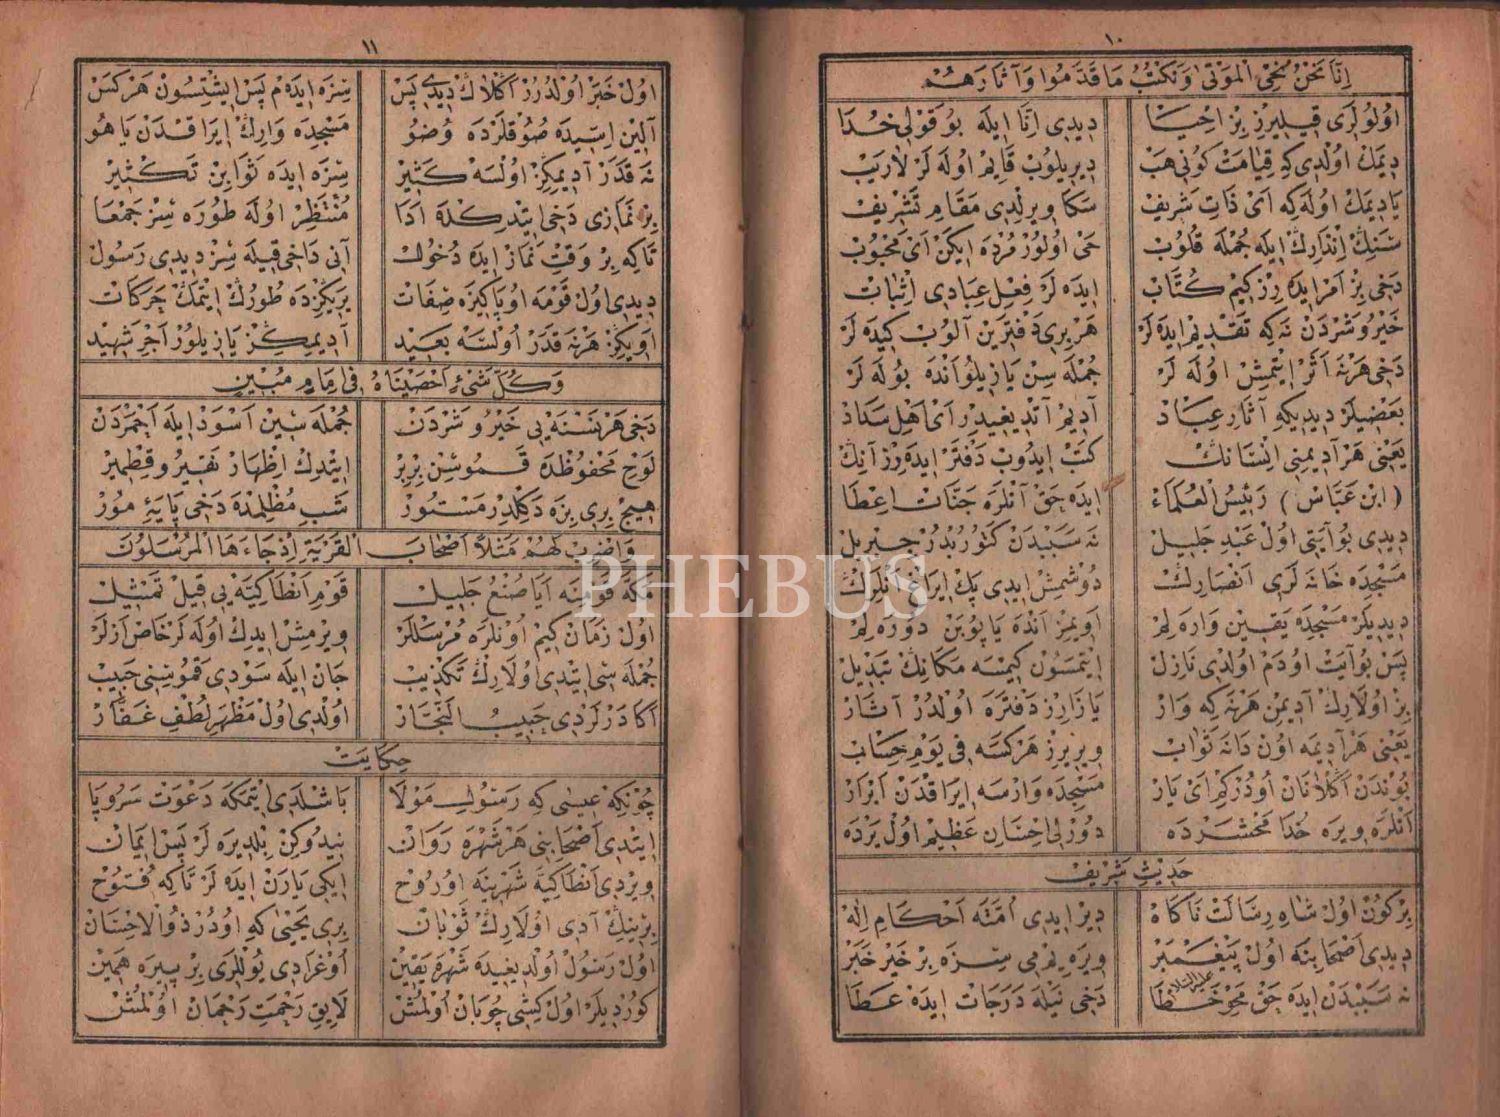 ١٠
اِنَّا نَحْنُ نُحْيِ الْمَوْتٰى وَنَكْتُبُ مَا قَدَّمُوا وَآثَارَهُمْ
اولولرى قيليرز بز احيا ديدى انا ايله بو قولى خدا
ديمك اولدى كه قيامت كونى هب ديريلوب قايم اوله لر لاريب
ياديمك اوله كه اى ذات شريف سكا ويرلدى مقام تشريف
سنك انذارك ايله جمله قلوب حى اولور مرده ايكن اى محبوب
دخى بز امر ايده رز كيم كتاب ايده لر فعل عبادى اثبات
خير و شردن نه كه تقديم ايده لر هر برى دفترين آلوب كيده لر
دخى هر نه اثر ايتمش اوله لر جمله سن يازيلو آنده بوله لر
بعضيلر ديديكه آثار عباد آديم آتديغيدر اى اهل سداد
يعنى هر آديمنى انسانك كتب ايدوب دفتر ايده رز آنك
(ابن عباس) رئيس العلماء ايده حق آنلره جنات اعطا
ديدى بو آيتى اول عبد جليل نه سببدن كتوربدر جبريل
مسجده خانه لرى انصارك دوشمش ايدى پك ايراق آنلرك
ديديلر مسجده يقين واره لم اويمز آنده ياپوبن دوره لم
پس بو آيت اودم اولدى نازل ايتمسون كيمسه مكانك تبديل
بز اولارك آديمن هر نه كه وار يازارز دفتره اولدر آثار
يعنى هر آديمه اون دانه ثواب ويريرز هر كسه فى يوم حساب
بوندن آكلانان اودركم اى يار مسجده وارسه ايراقدن ابرار
آنلره ويره خدا محشرده دورلى احسان عظيم اول يرده
حديث شريف
بر كون اول شاه رسالت ناكاه دير ايدى امته احكام اله
ديدى اصحابنه اول پيغمبر ويره لم مى سزه بر خير خبر
عليه السلام
نه سببدن ايده حق محو خطا دخى نيله درجات ايده عطا
١١
اول خبر اولدرر آكلاك ديدى پس سزه ايده م پس ايشتسون هر كس
آلين ابتيده صوقلرده وضو مسجده وارك ايراقدن ياهو
نه قدر آديمكز اولسه كثير سزه ايده ثوابن تكثير
بز نمازى دخى ايتدكده ادا منتظر اوله طوره سز جمعا
تاكه بر وقت نماز ايده دخول آنى داخى قيله سز ديدى رسول
ديدى اول قومه او پاكيزه صفات يريكزده طورك ايتمك حركات
اويكز هر نه قدر اولسه بعيد آديمكز يازيلور اجر شهيد
وَكُلَّ شَىْءٍ اَحْصَيْنَاهُ فِى اِمَامٍ مُبِينٍ
دخى هر نسنه يى خير و شردن جمله سين اسود ايله احمردن
لوح محفوظده قموسن بربر ايتدك اظهار نقير و قطمير
هيچ برى بزه دكلدر مستور شب مظلمده دخى پايه مور
وَاضْرِبْ لَهُمْ مَثَلاً اَصْحَابَ الْقَرْيَةِ اِذْ جَاءَهَا الْمُرْسَلُونَ
مكه قومنه ايا صنع جليل قوم انطاكيه يى قيل تمثيل
اول زمان كيم اونلره مرسللر ويرمش ايدك اوله لر خاص ارلر
جمله سى ايتدى اولارك تكذيب جان ايله سودى قموسنى حبيب
آكا درلردى حبيب النجار اولدى اول مظهر لطف غفار
حكايت
چونكه عيسى كه رسول مولا باشلدى ايتمكه دعوت سروپا
ايتدى اصحابنى هر شهره روان نيدوكن بلديره لر پس ايمان
ويردى انطاكيه شهرينه اوروح ايكى يارن ايده لر تاكه فتوح
برينك آدى اولارك ثوبان برى يحيى كه اودر ذوالاحسان
اول رسول اولديغيده شهره يقين اوغرادى يوللرى بر پيره همين
كورديلر اول كشى چوبان اولمش لايق رحمت رحمان اولمش
PHEBUS